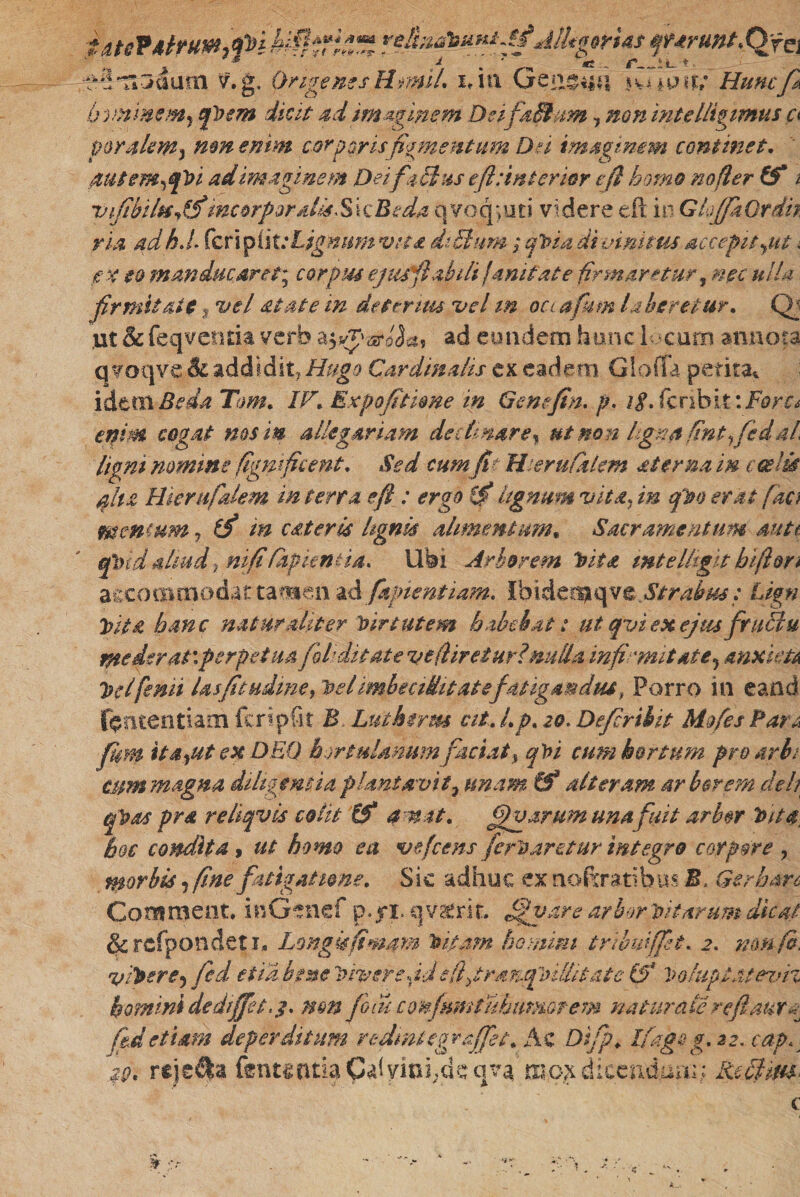 tatePatrum,qVi hiſt relinqVunt,& Allegorias qværunt.
modum v.g. Origenes Homil. 1.in Genes. Hunc
hominem, qVem dicit ad imaginem Dei factum, non intelligimus
poralem, non enim corporis figmentum Dei imaginem continet.
autem,qVi ad imaginem Dei factus eſt:interior eſt homo noſter &
viſibilis,& incorporalis.Sic Beda qvoqꝫuti videre eſt in Gloſſa
ria ad h.l. ſcripſit:Lignum vitæ dictum; qVia divinitus accepit,ut
ex eo manducaret; corpus ejus ſtabili ſanitate firmaretur, nec ulla
firmitate, vel ætate in deterius vel in occaſum laberetur.
ut & ſeqventia verb ad eundem hunc locum annota
qvoqve & addidit, Hugo Cardinalis ex eadem Gloſſa petita.
idem Beda Tom. IV. Expoſitione in Geneſin. p. 18. ſcribit:
enim cogat nos in allegoriam declinare, ut non ligna ſint,ſed
ligni nomine ſignificent. Sed cum ſit Hieruſalem æterna in cœlis
alia Hieruſalem in terra eſt: ergo & lignum vitæ, in qVo erat
mentum, & in cæteris lignis alimentum. Sacramentum
qVid aliud, niſi ſapientia. Ubi Arborem Vitæ intelligit
accommodat tamen ad ſapientiam. Ibidemqve Strabus:
Vitæ hanc naturaliter Virtutem habebat: ut qvi ex ejus fructu
mederat:perpetua ſoliditate veſtiretur? nulla infirmitate,
Vel ſenii laſſitudine, Vel imbecillitate fatigandus, Porro in
ſententiam ſcripſit B. Lutherus cit.l.p.20. Deſcribit Moſes
ſum ita,ut ex DEO hortulanum faciat, qVi cum hortum pro
cum magna diligentia plantavit, unam & alteram arborem
qVas præ reliqvis colit & amat. Qvarum una fuit arbor Vitæ
hoc condita, ut homo ea veſcens ſerVaretur integro corpore,
morbis, ſine fatigatione. Sic adhuc ex noſtratibus B.
Comment. in Geneſ p.51. qværit. Qvare arbor Vitarum
& reſpondet 1. Longiſſimam Vitam homini tribuiſſet. 2. non
viVere, ſed etiã bene Vivere,id eſt,tranqVillitatẽ &
homini dediſſet.3. non ſolũ conſumtũ humorem naturalẽ
ſed etiam deperditum redintegraſſet. Ac Diſp. Iſagog. 22. cap.
rejecta ſententia Calvini,de qva mox dicendum: